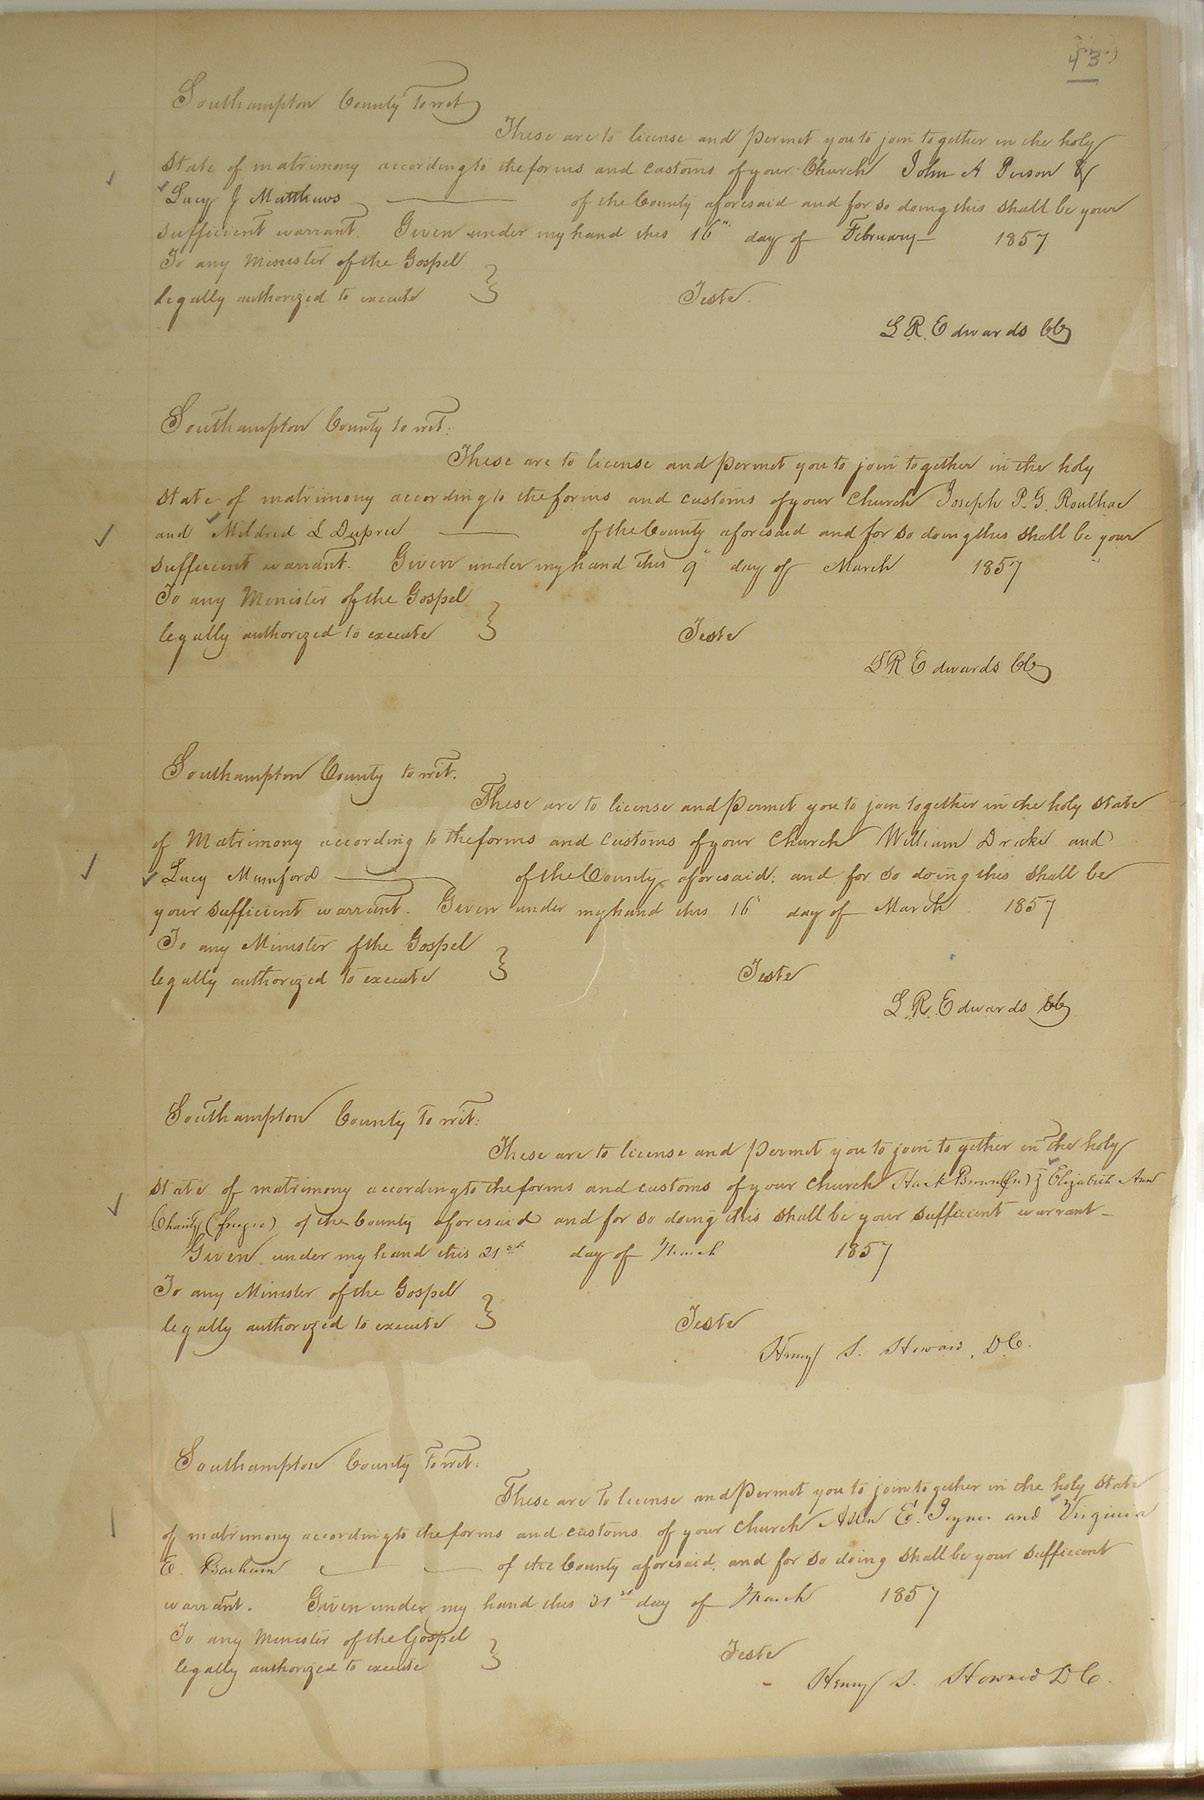 43
Southampton County to wit
These are to license and permit you to join together in the holy
State of matrimony according to the forms and customs of your Church John A Person &
Lucy J Matthews of the County aforesaid and for so doing this shall be your
sufficient warrant. Given under my hand this 16" day of February 1857
To any Minister of the Gospel
legally authorized to execute } Teste.
L R. Edwards CC
Southampton County to wit:
These are to license and permit you to join together in the holy
State of matrimony according to the forms and customs of your Church Joseph P. G. Roulhac
and Mildred L Dupree of the County aforesaid and for so doing this shall be your
sufficient warrant. Given under my hand this 9" day of March 1857
To any Minister of the Gospel
legally authorized to execute } Teste
L R Edwards CC
Southampton County to wit.
These are to license and permit you to join together in the holy state
of Matrimony according to the forms and customs of your Church William Drake and
Lucy Mumford of the County aforesaid: and for so doing this shall be
your sufficient warrant. Given under my hand this 16" day of March 1857
To any Minister of the Gospel
legally authorized to execute } Teste
L. R. Edwards CC
Southampton County to wit:
These are to license and permit you to join together in the holy
State of matrimony according to the forms and customs of your Church & Elizabeth Ann
Charity of the County aforesaid and for so doing this shall be your sufficient warrant
Given under my hand this 21st day of March 1857
To any Minister of the Gospel
legally authorized to execute } Teste
Henry S. Howard, D.C.
Southampton County to wit.
These are to license and permit you to join together in the holy state
of matrimony according to the forms and customs of your Church E. Joyner and Virginia
E. Barham of the County aforesaid, and for so doing shall be your sufficient
warrant. Given under my hand this 21st day of March 1857
To any Minister of the Gospel
legally authorized to execute } Teste
Henry S. Howard D C.